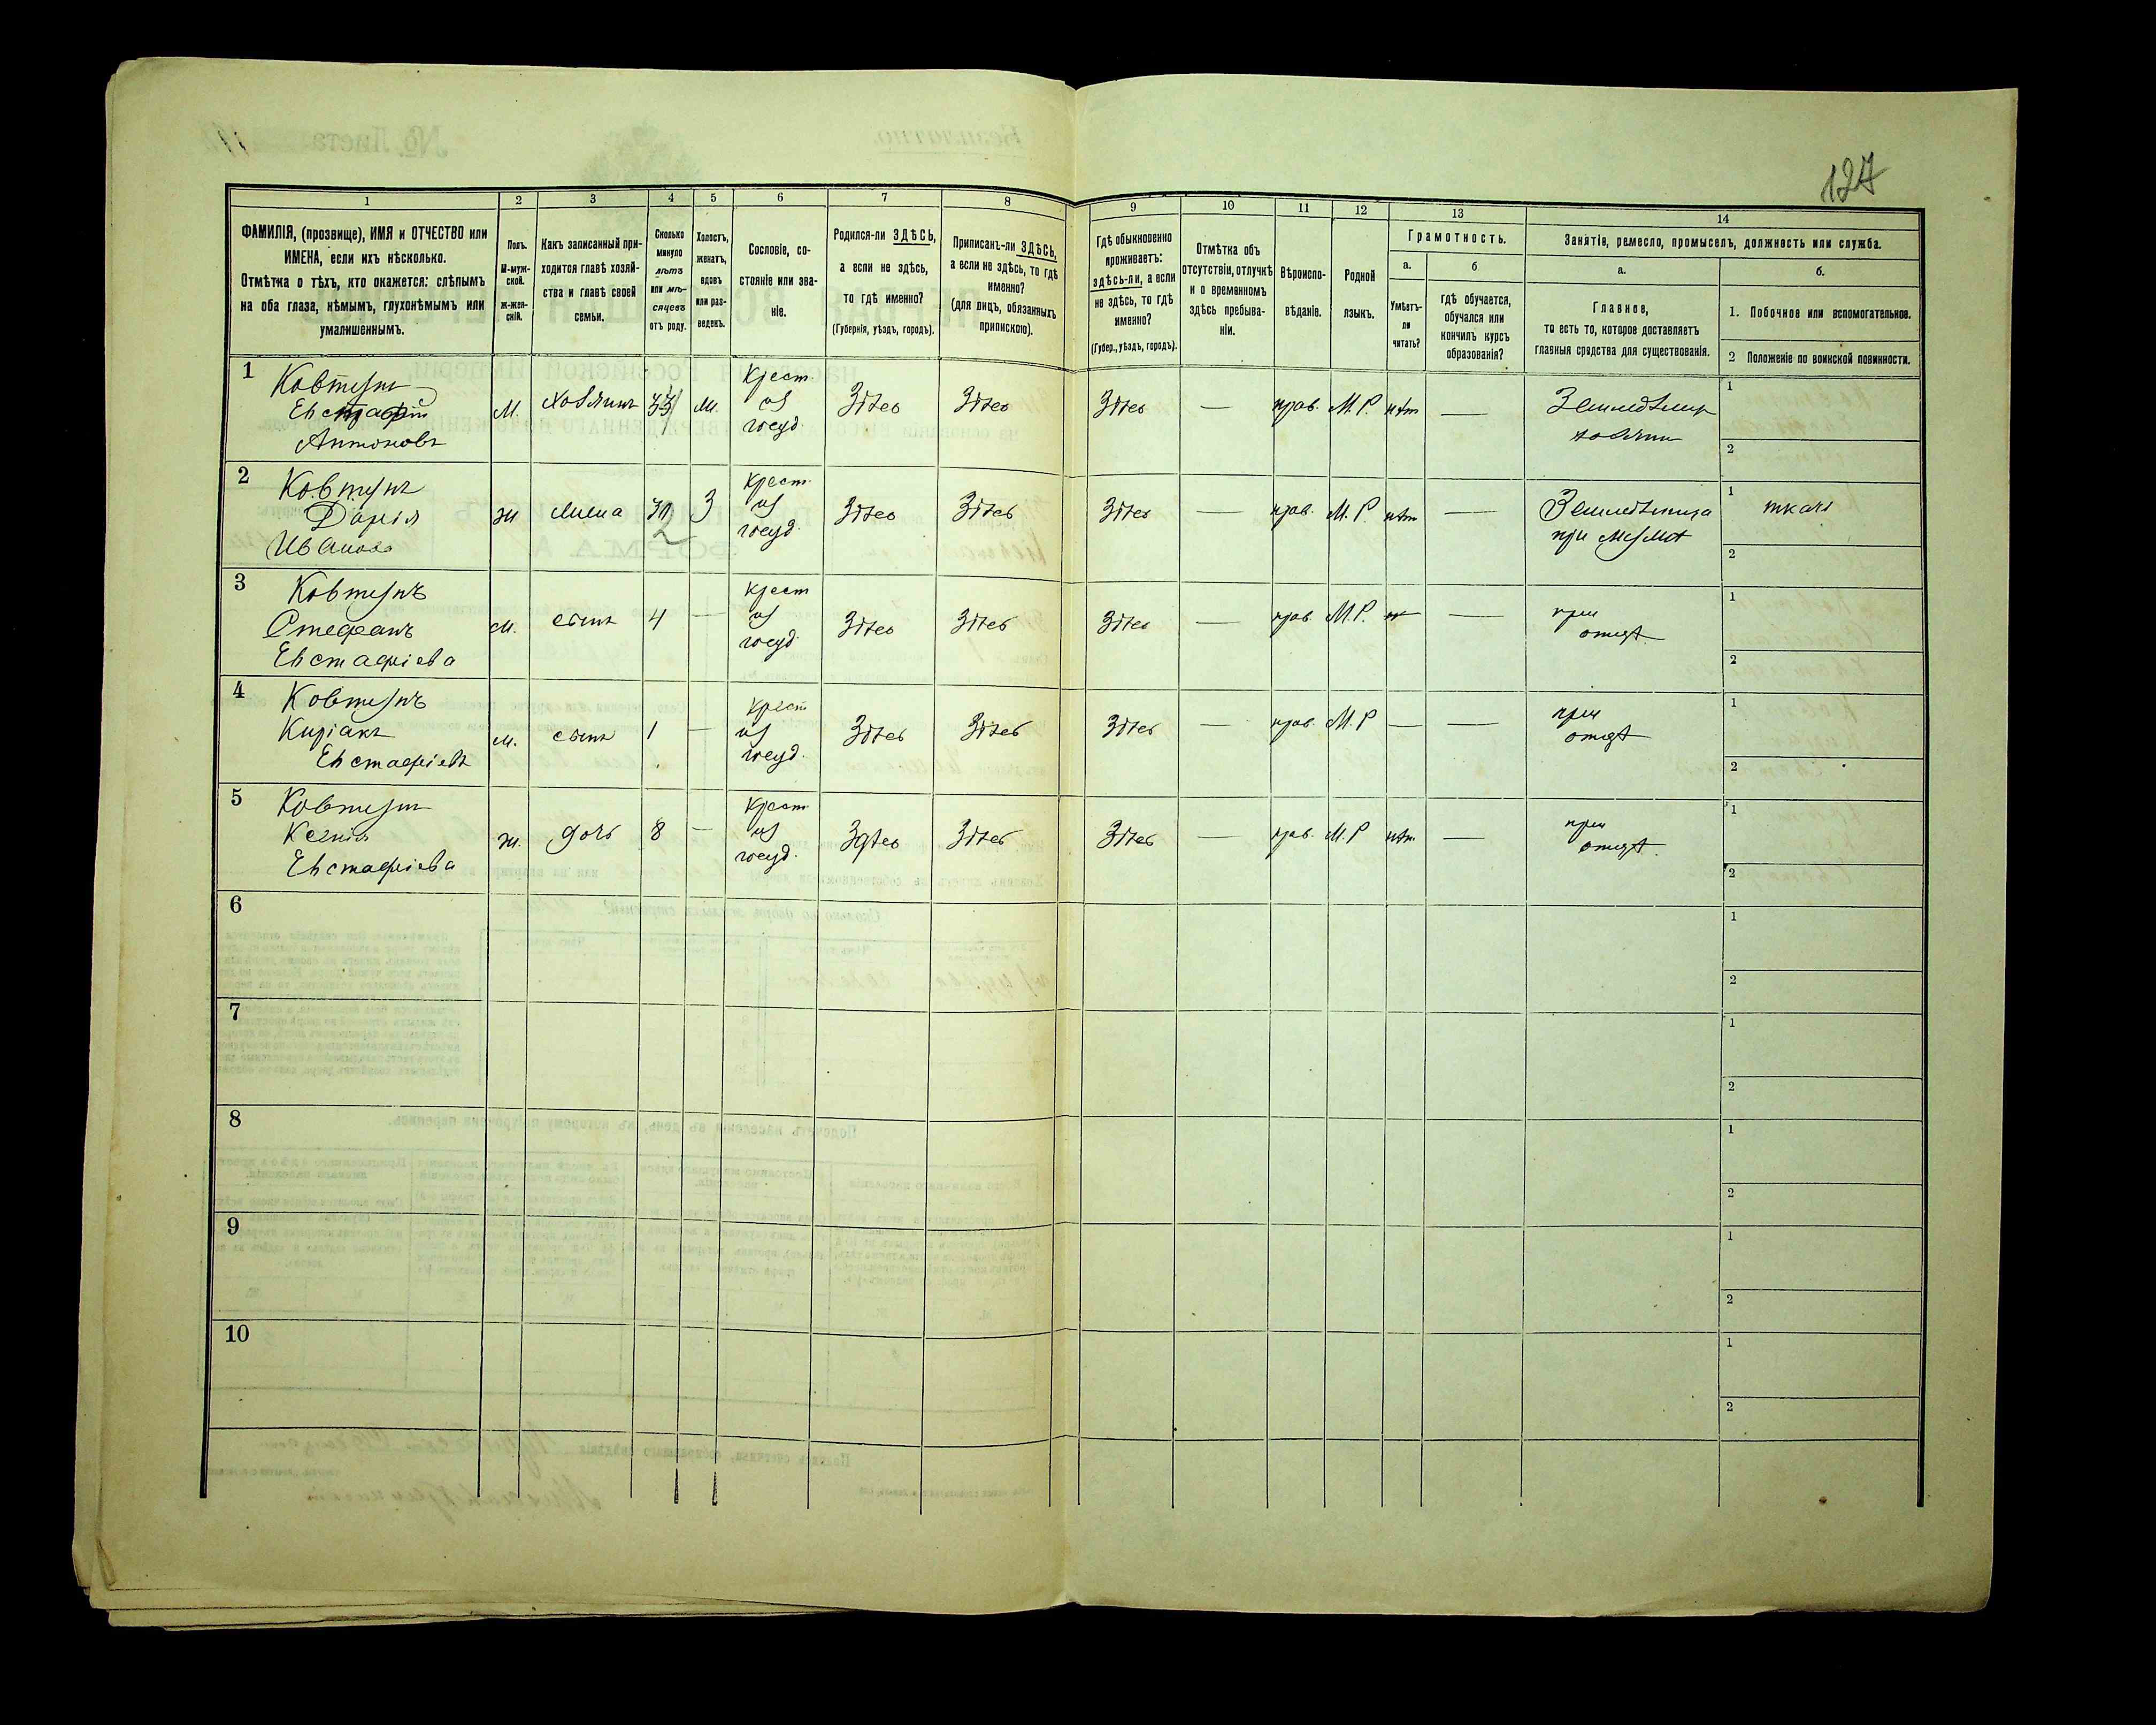 127
1 2 3 4 5 6 7 8 9 10 11 12 13 14
ФАМИЛІЯ, (прозвище), ИМЯ и ОТЧЕСТВО или
ИМЕНА, если ихъ нѣсколько.
Отмѣтка о тѣхъ, кто окажется: слѣпымъ
на оба глаза, нѣмымъ, глухонѣмымъ или
умалишеннымъ.
Полъ.
М-муж-
ской.
Ж-жен-
скій.
Какъ записанный при-
ходится главѣ хозяй-
ства и главѣ своей
семьи.
Сколько
минуло
лѣтъ
или мѣ-
сяцевъ
отъ роду.
Холостъ,
женатъ,
вдовъ
или раз-
веденъ.
Сословіе, со-
стояніе или зва-
ніе.
Родился-ли ЗДѢСЬ,
а если не здѣсь,
то гдѣ именно?
(Губернія, уѣздъ, городъ).
Приписанъ-ли ЗДѢСЬ,
а если не здѣсь, то гдѣ
именно?
(для лицъ, обязанныхъ
припискою).
Гдѣ обыкновенно
проживаетъ:
здѣсь-ли, а если
не здѣсь, то гдѣ
именно?
(Губер., уѣздъ, городъ).
Отмѣтка объ
отсутствіи, отлучкѣ
и о временномъ
здѣсь пребыва-
ніи.
Вѣроиспо-
вѣданіе.
Родной
языкъ.
Грамотность.
а.
Умѣетъ-
ли
читать?
б
гдѣ обучается,
обучался или
кончилъ курсъ
образованія?
Занятіе, ремесло, промыселъ, должность или служба.
а.
Главное,
то есть то, которое доставляетъ
главныя средства для существованія.
б.
1. Побочное или вспомогательное.
2 Положеніе по воинской повинности.
1
Ковтунъ
Евстафій
Антоновъ
М. хозяинъ м.
Крест
из
госуд.
Здѣсь Здѣсь Здѣсь — прав. М.Р. нѣт —
Земледѣлец
хозяин
1
2
2
Ковтунъ
Дарія
Иванова
ж жена 3
Крест.
из
госуд.
Здѣсь Здѣсь Здѣсь — прав. М.Р. нѣт —
Земледѣлица
при мужѣ
1 ткачь
2
3
Ковтунъ
Стефанъ
Евстафіева
м. сынъ 4 —
Крест
из
госуд
Здѣсь Здѣсь Здѣсь — прав М.Р. —
при
отцѣ
1
2
4
Ковтунъ
Киріакъ
Евстафіевъ
м. сынъ 1 —
Крест
из
госуд.
Здѣсь Здѣсь Здѣсь — прав. М.Р — —
при
отцѣ
1
2
5
Ковтунъ
Ксенія
Евстафіева
ж. дочь 8 —
Крест
из
госуд.
Здѣсь Здѣсь Здѣсь — прав. М.Р нѣт —
при
отцѣ.
1
2
6
1
2
7
1
2
8
1
2
9
1
2
10
1
2